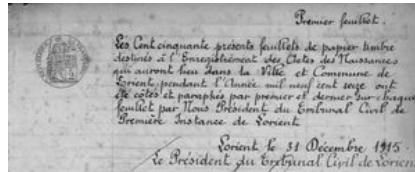 Premier feuillet.
Les Cent cinquante présents feuillets de papier timbré
destinés à l'Enregistrement des Actes des Naissances
qui auront lieu dans la Ville et Commune de
Lorient, pendant l'Année mil neuf cent seize ont
été cotés et paraphés par premier et dernier sur chaque
feuillet par Nous Président du Tribunal Civil de
Première Instance de Lorient
Lorient le 31 Décembre 1915.
Le Président du Tribunal Civil de Lorien